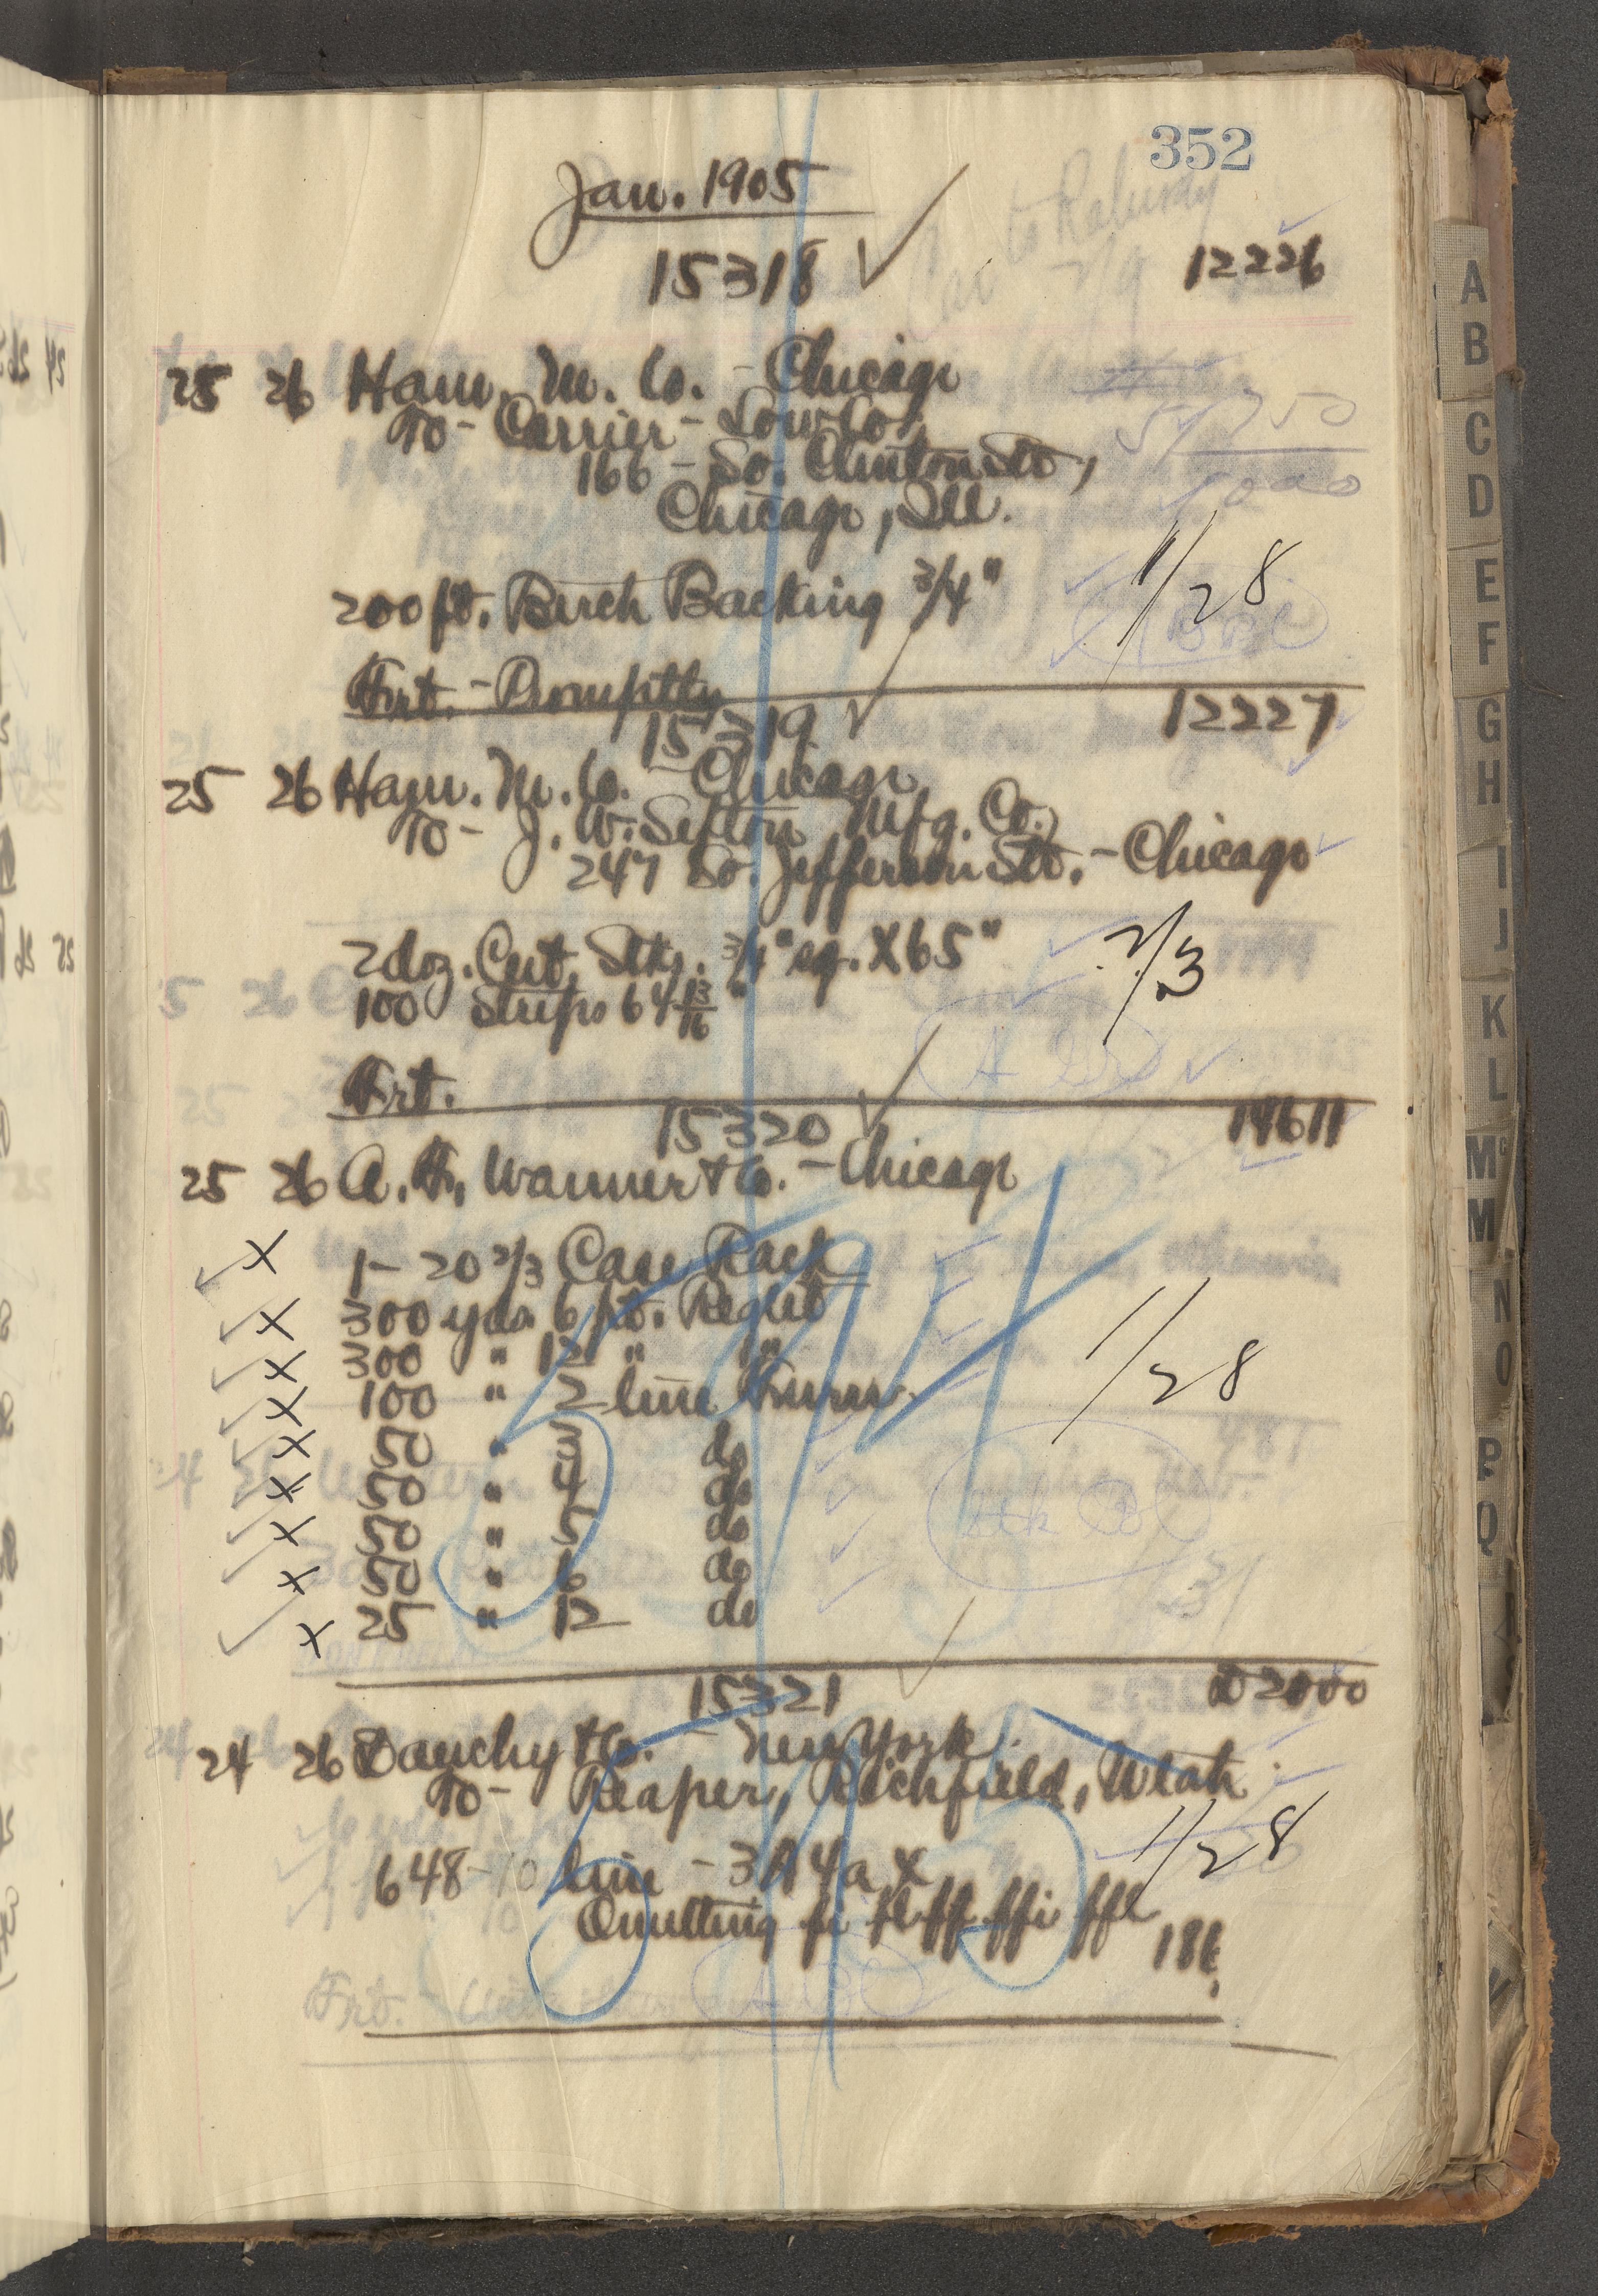 352
Jan. 1905
15318 ✓ 12226
25 26 Ham. M. Co. - Chicago
To - Carrier - Low Co.
166 - So. Clinton St.,
Chicago, Ill.
200 ft. Birch Backing 3/4" 1/28
Frt. - Promptly
15319 ✓ 12227
25 26 Ham. M. Co. - Chicago
To - J. W. Sefton Mfg. Co.
247 So. Jefferson St. - Chicago
2 doz. Cut. Stks. 3/4" sq. X 65" 2/3
100 Strips 64 13/16"
Frt.
15320 ✓ 14611
25 26 A. F. Wanner & Co. - Chicago
✓ X 1 - 20 2/3 Case Rack
✓ X 300 yds. 6 pt. Reglet
✓ X 300 " 12 " "
✓ X 100 " 2 line Furn. 1/28
✓ X 50 " 3 do
✓ X 50 " 4 do
✓ X 50 " 5 do
✓ X 50 " 6 do
✓ X 25 " 12 do
594
15321 ✓ D 2000
24 26 Dauchy & Co. - New York.
To - Reaper, Richfield, Utah
648 - 10 line - 3A 4a X 1/28
Omitting fi fl ff ffi ffl
18¢
595
A
B
C
D
E
F
G
H
I
J
K
L
Mc
M
N
O
P
Q